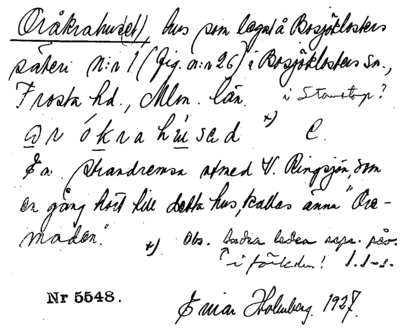 Oråkrahuset), hus som legat å Bosjöklosters
säteri N:r 1 (fig. a:n 26) i Bosjöklosters sn.,
Frosta hd., Mlm. län. i Stanstorp?
o r ó k r a h u s e d x) C.
En strandremsa utmed V. Ringsjön, som
en gång hört till detta hus, kallas ännu "Ore-
maden".
x) Obs. badra leden
i förkden!
Nr 5548.
Einar Holmberg. 1927.